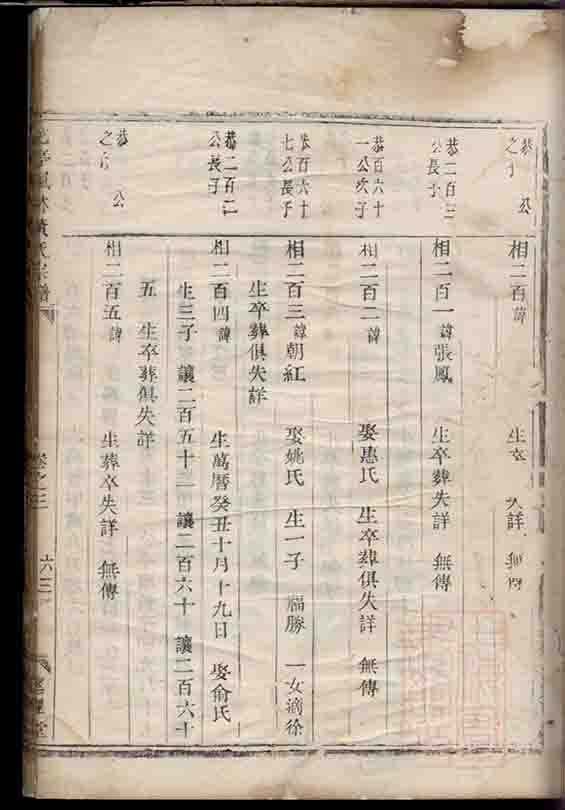 恭 公
之子
相二百諱 生卒 失詳 無傳
恭二百三
公長子
相二百一諱張鳳 生卒葬失詳 無傳
恭百六十
一公次子
相二百二諱 娶惠氏 生卒葬俱失詳 無傳
恭百六十
七公長子
相二百三諱朝紅 娶姚氏 生一子 福勝 一女適徐
生卒葬俱失詳
恭二百二
公長子
相二百四諱 生萬曆癸丑十月十九日 娶俞氏
生三子 讓二百五十 讓二百六十 讓二百六十
五 生卒葬俱失詳
恭 公
之子
相二百五諱 生葬卒失詳 無傳
氏宗譜 卷之三 六三 堂